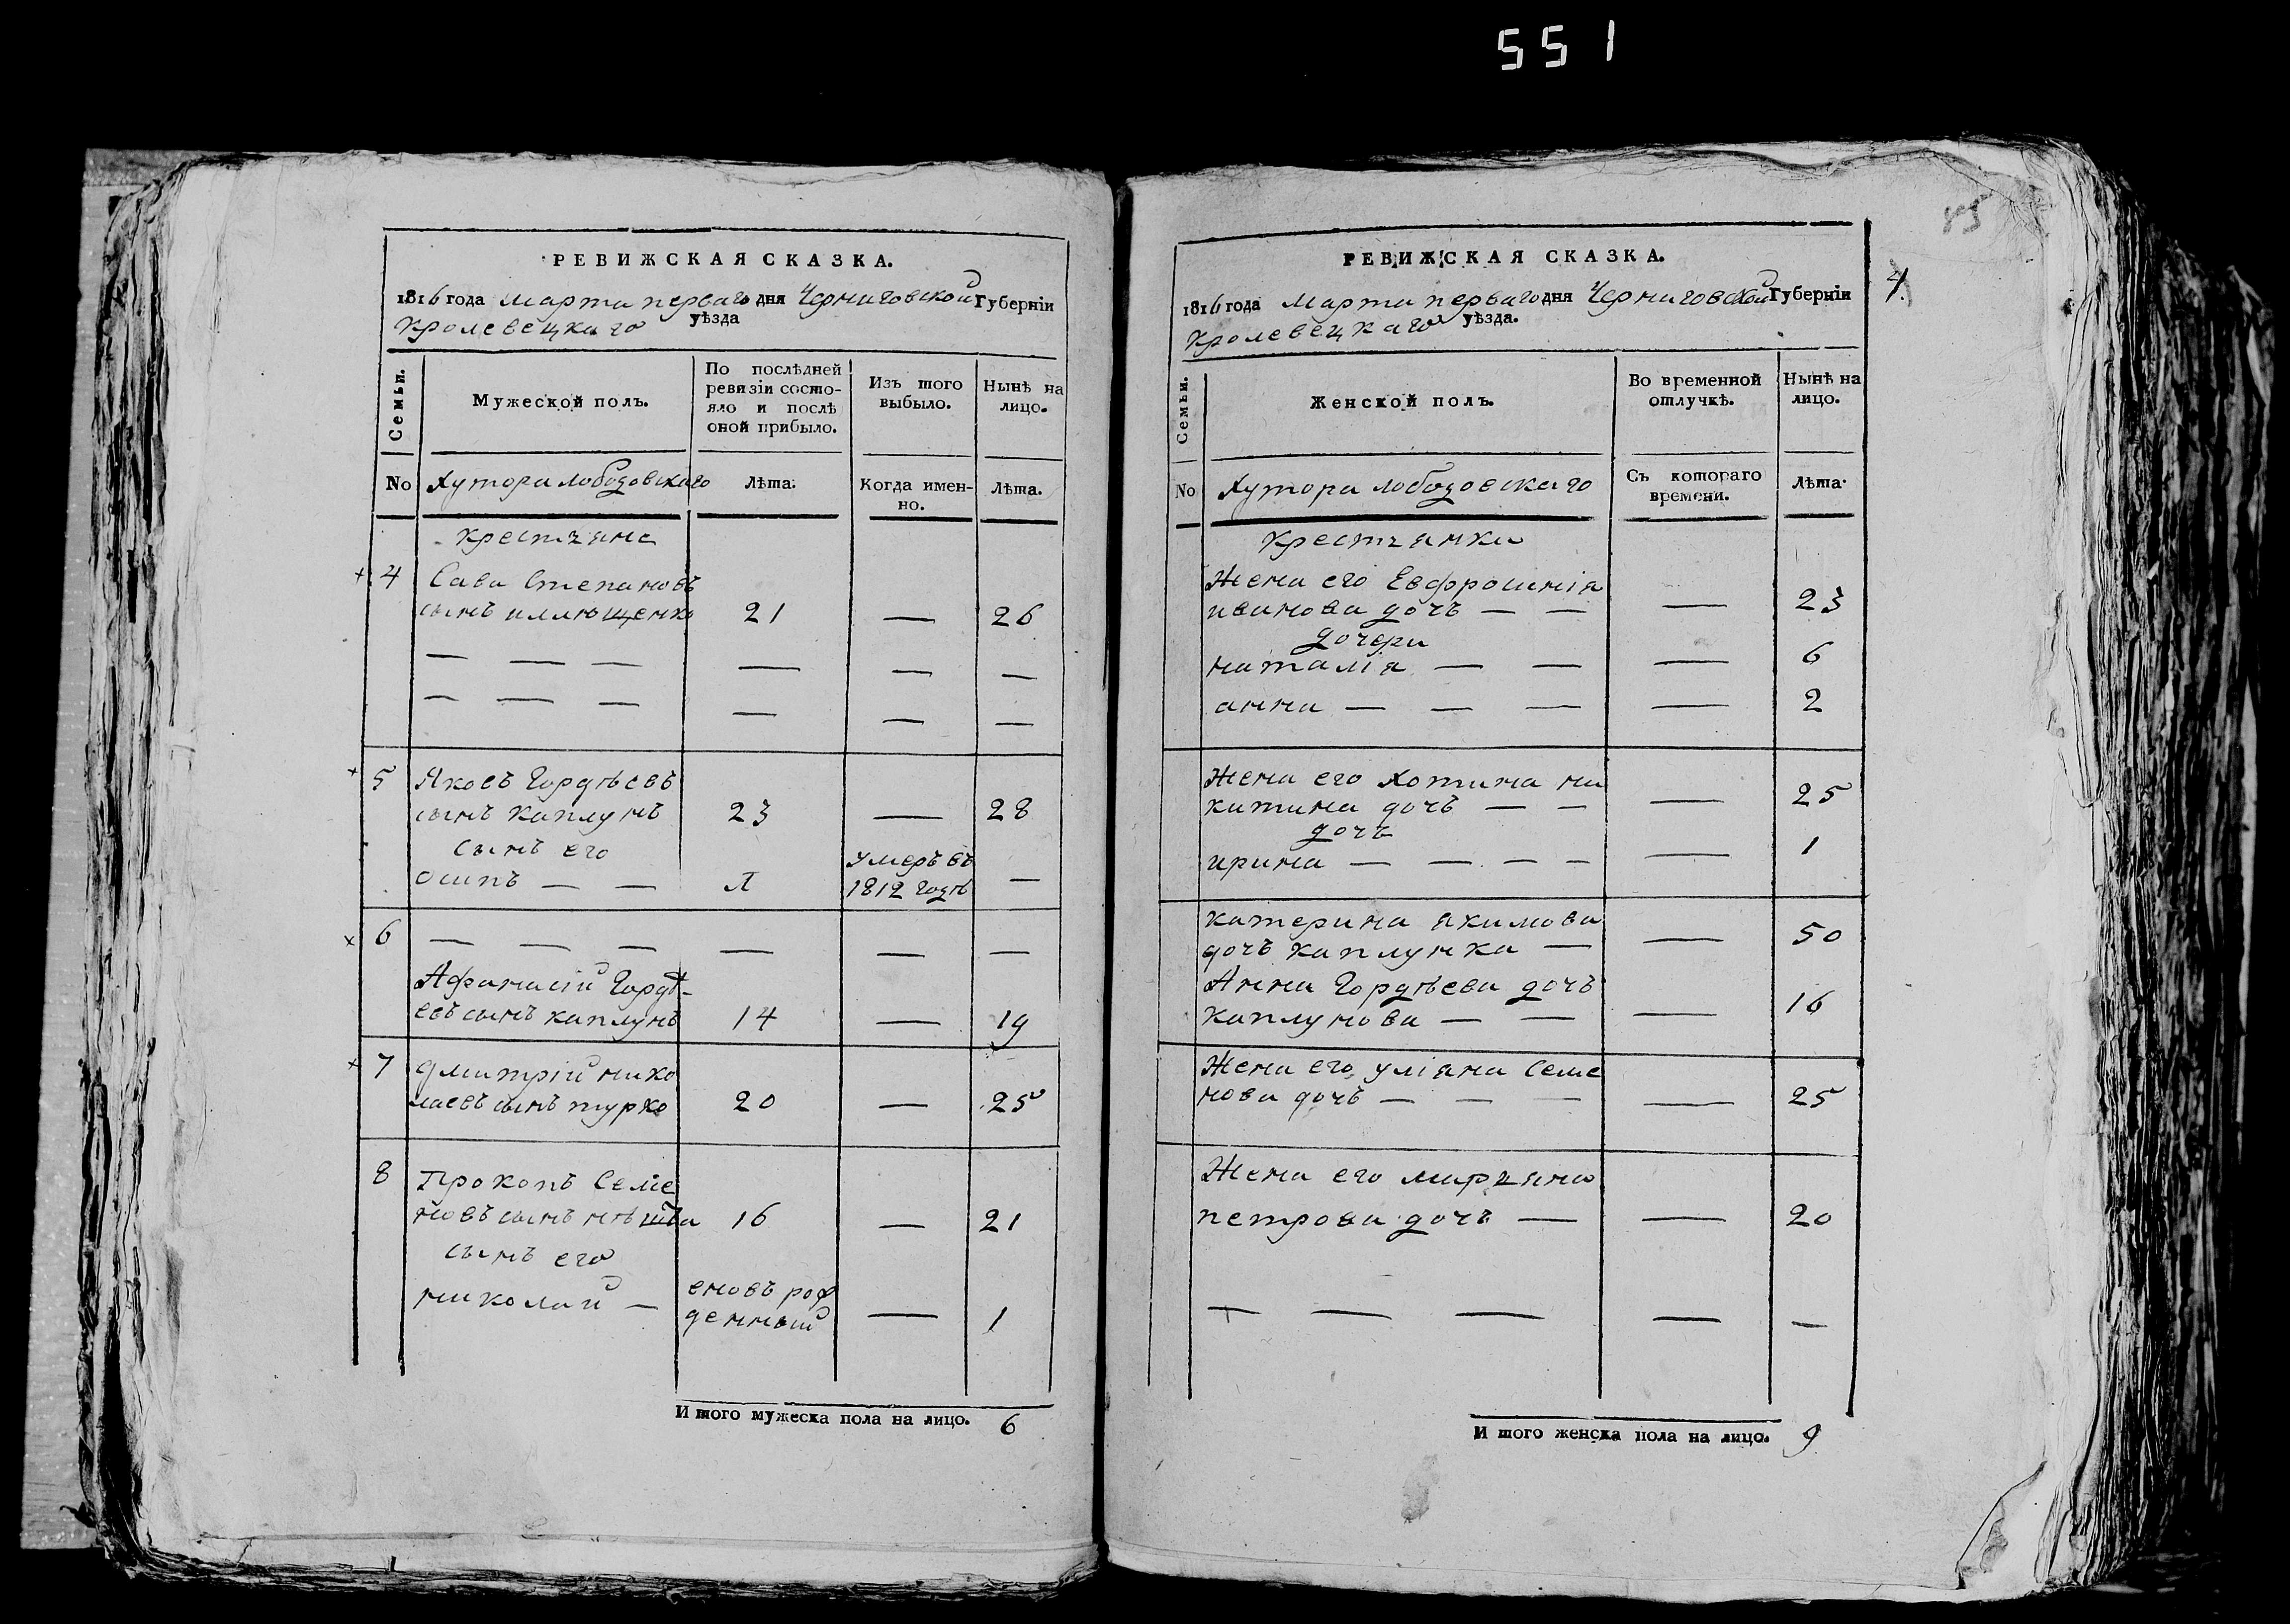 551
РЕВИЖСКАЯ СКАЗКА.
1816 года Марта перваго дня Черниговской Губерніи
Кролевецкаго уѣзда
Семьи.
Мужеской полъ.
По послѣдней
ревизіи состо-
яло и послѣ
оной прибыло.
Изъ того
выбыло.
Нынѣ на
лицо.
No
Хутора Лободовскаго
Лѣта.
Когда имен-
но.
Лѣта.
крестяне
4 Сава Степановъ
сынъ 21 — 26
— — — — — —
— — — — — —
5 Яковъ Гордѣевъ
сынъ каплунъ 23 — 28
сынъ его умеръ въ
осипъ — — 1812 годѣ —
6 — — — — — —
Афанасій Гордѣ-
евъ сынъ каплунъ 14 — 19
7 дмитрій нико
лаевъ сынъ турко 20 — 25
8 Прокопъ Семе
новъ сынъ 16 — 21
сынъ его
николай — еновъ рож
денный — 1
Итого мужеска пола на лицо. 6
85
РЕВИЖСКАЯ СКАЗКА.
4
1816 года Марта перваго дня Черниговской Губерніи
Кролевецкаго уѣзда.
Семьи.
Женской полъ.
Во временной
отлучкѣ.
Нынѣ на
лицо.
No
Хутора Лободовскаго
Съ котораго
времени.
Лѣта.
крестянки
Жена его Евфросинія
иванова дочъ — — — 23
дочери
наталія — — — 6
анна — — — — 2
Жена его хотина ни
китина дочъ — — — 25
дочъ
ирина — — — — — 1
катерина якимова
дочъ каплунка — — 50
Анна Гордѣева дочъ
каплунова — — — 16
Жена его уліяна Семе
нова дочъ — — — — 25
Жена его марияна
петрова дочъ — — 20
— — — — —
Итого женска пола на лицо. 9